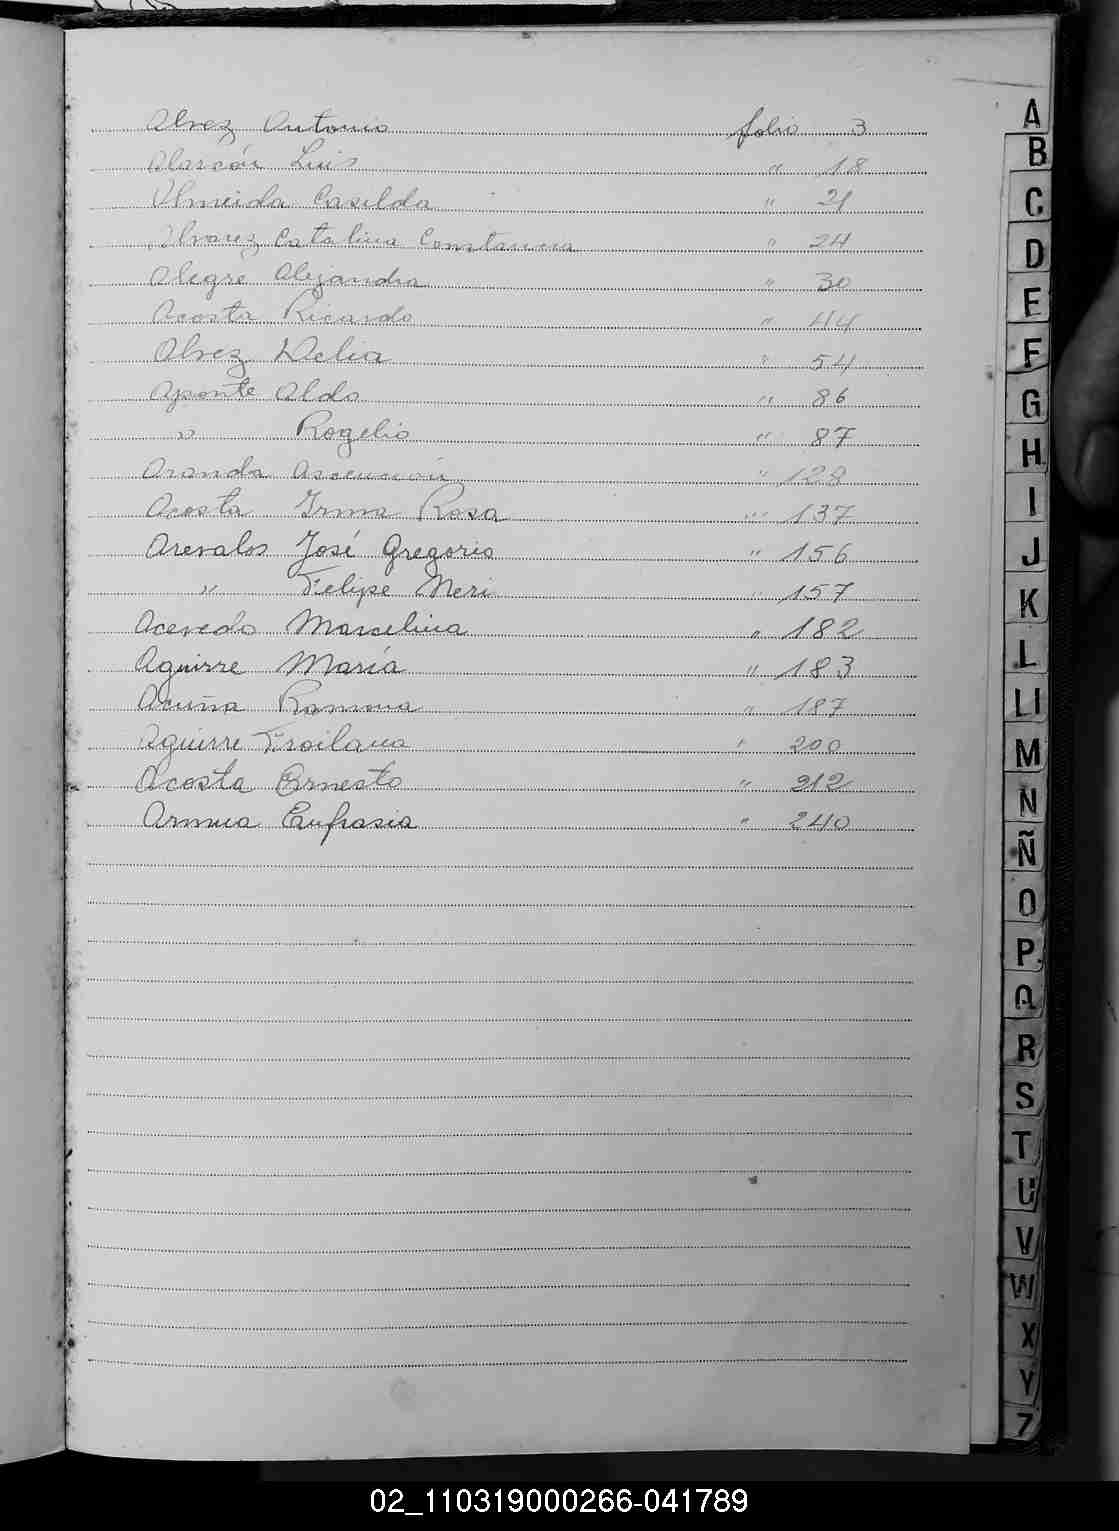 Alvez Antonio folio 3
Alarcón Luis " 18
Almeida Casilda " 21
Alvarez Catalina Constancia " 24
Alegre Alejandra " 30
Acosta Ricardo " 44
Alvez Delia " 54
Aponte Aldo " 86
" Rogelio " 87
Aranda Ascención " 128
Acosta Irma Rosa " 137
Arevalos José Gregorio " 156
" Felipe Neri " 157
Acevedo Marcelina " 182
Aguirre María " 183
Acuña Ramona " 187
Aguirre Froilana " 200
Acosta Ernesto " 212
Armua Eufrasia " 240
A
B
C
D
E
F
G
H
I
J
K
L
Ll
M
N
Ñ
O
P
Q
R
S
T
U
V
W
X
Y
Z
02_110319000266-041789